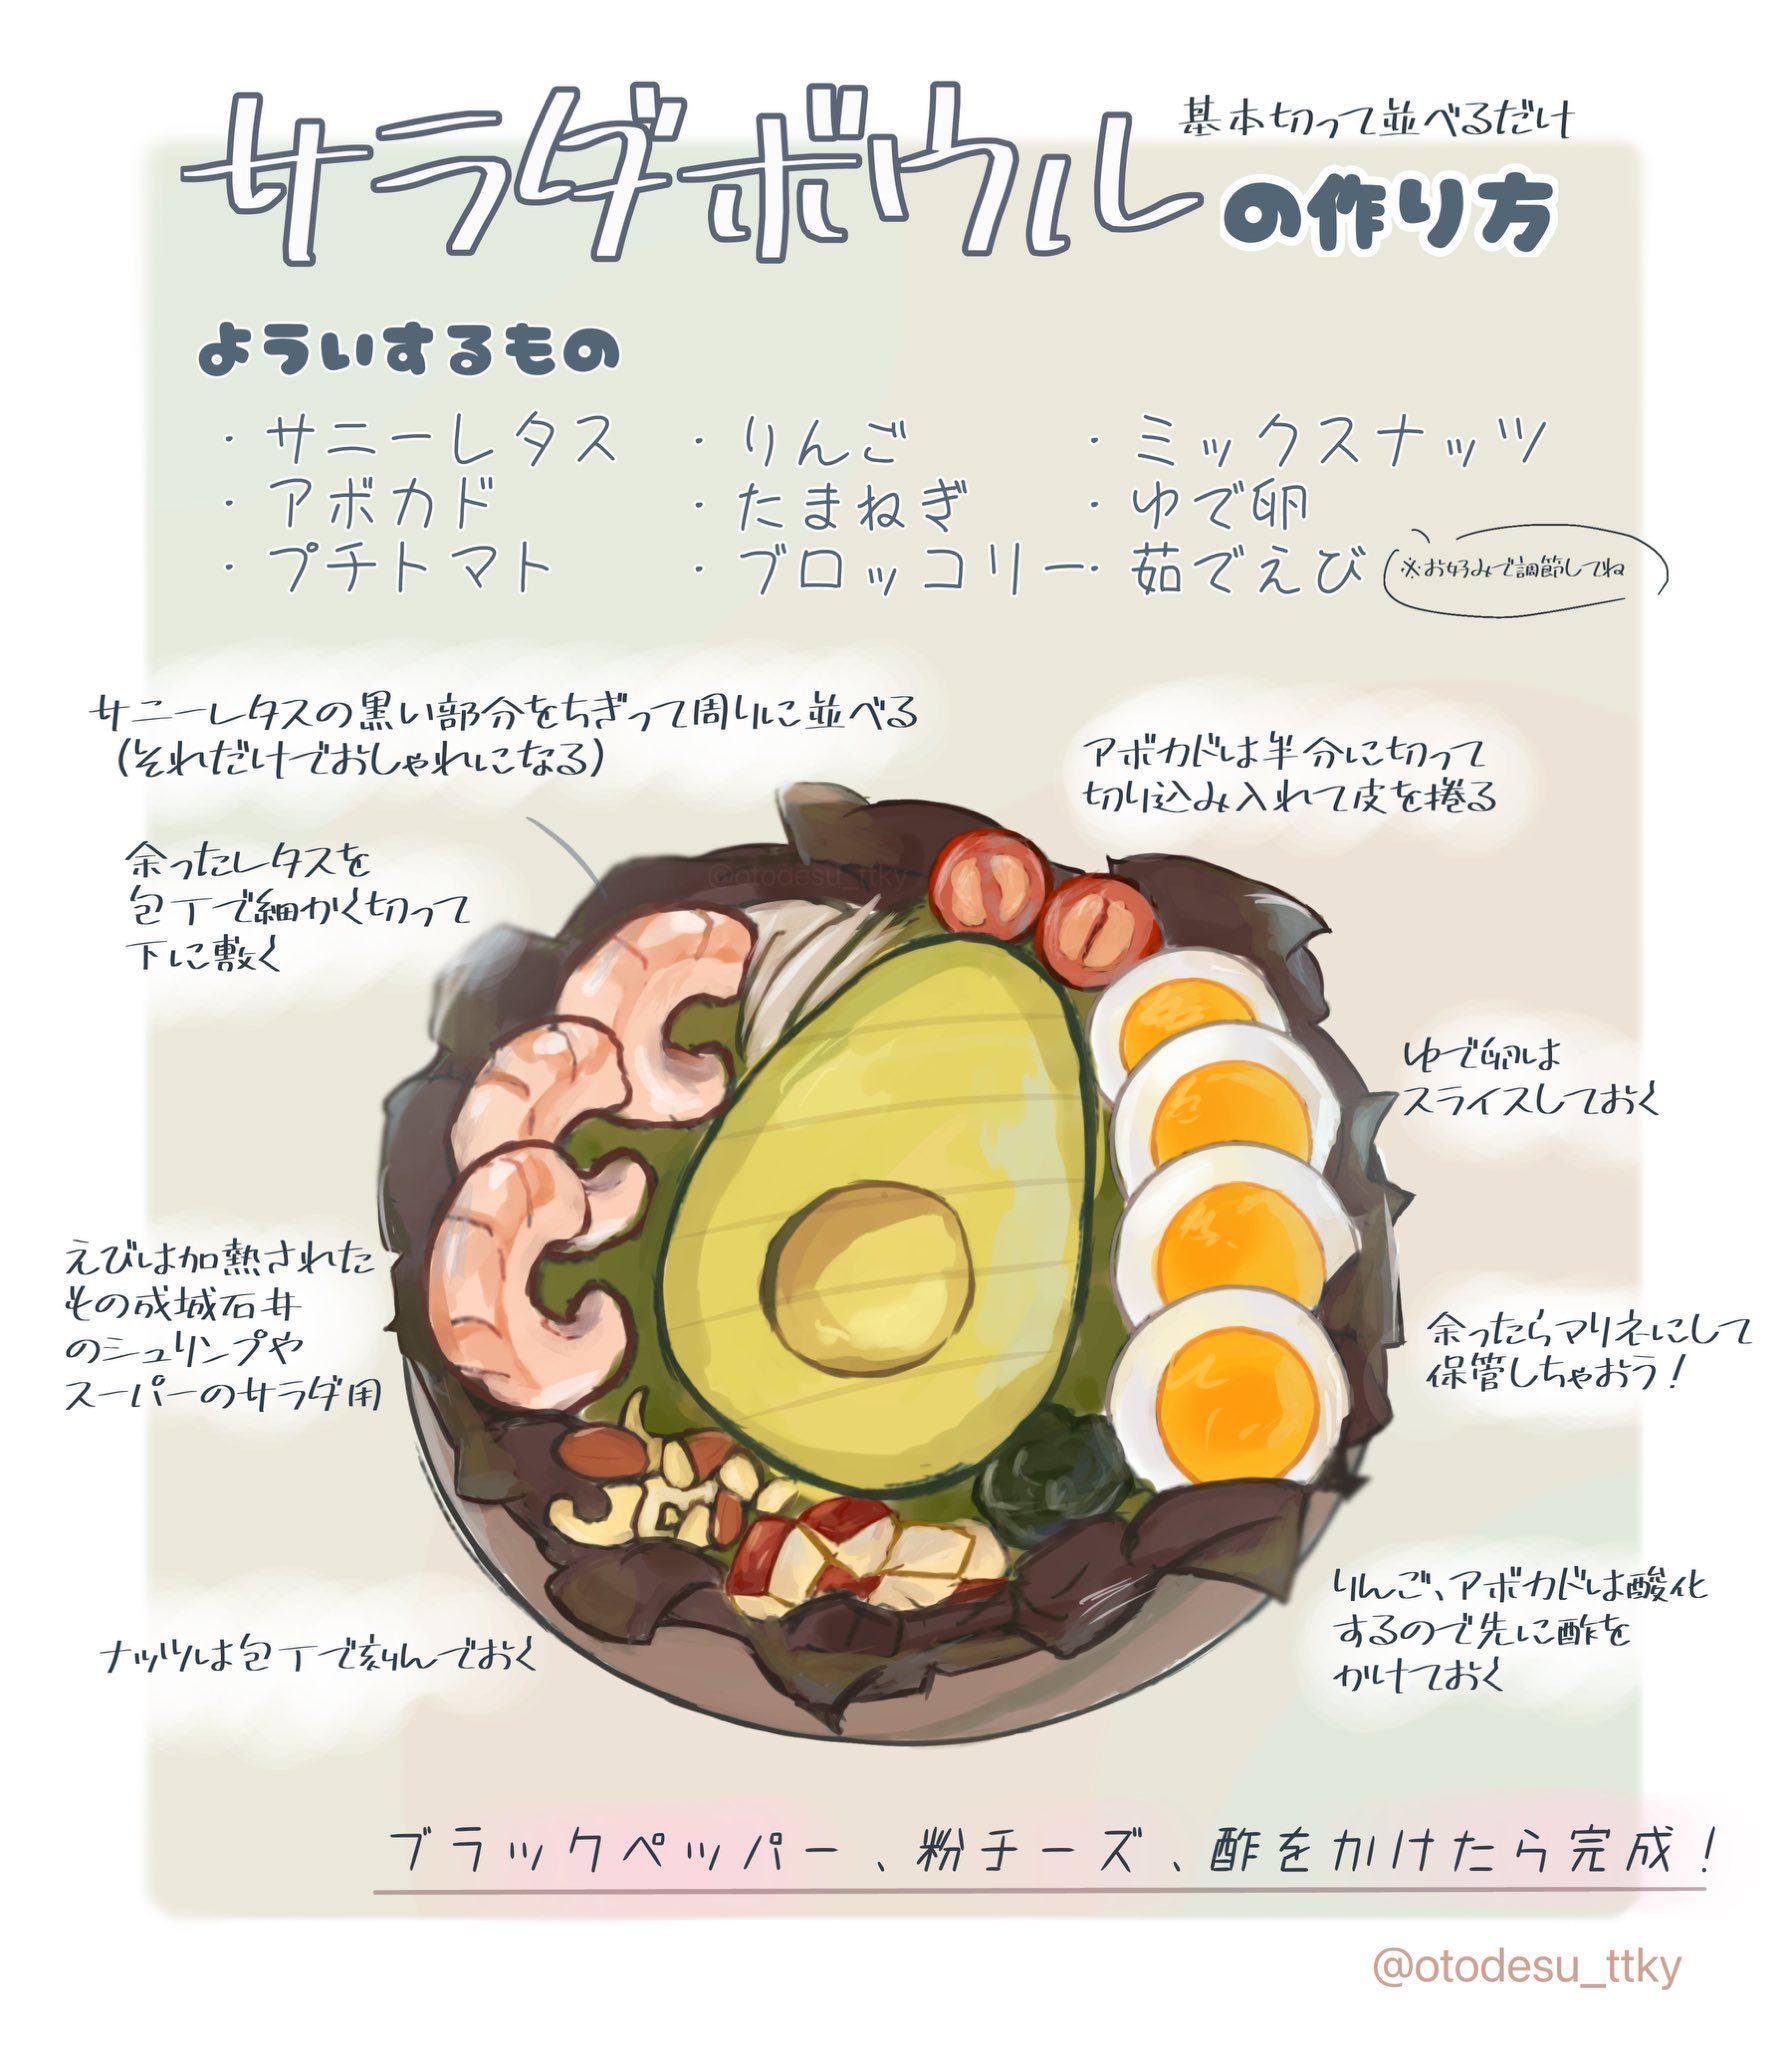 基本切って並べるだけ
サラダボウルの作り方
よういするもの
・サニーレタス ・りんご ・ミックスナッツ
・アボカド ・たまねぎ ・ゆで卵
・プチトマト ・ブロッコリー ・茹でえび ※お好みで調節してね
サニーレタスの黒い部分をちぎって周りに並べる
(それだけでおしゃれになる)
アボカドは半分に切って
切り込み入れて皮を捲る
余ったレタスを
包丁で細かく切って
下に敷く
@otodesu_ttky
ゆで卵は
スライスしておく
えびは加熱された
もの成城石井
のシュリンプや
スーパーのサラダ用
余ったらマリネにして
保管しちゃおう!
りんご、アボカドは酸化
するので先に酢を
かけておく
ナッツは包丁で刻んでおく
ブラックペッパー、粉チーズ、酢をかけたら完成!
@otodesu_ttky